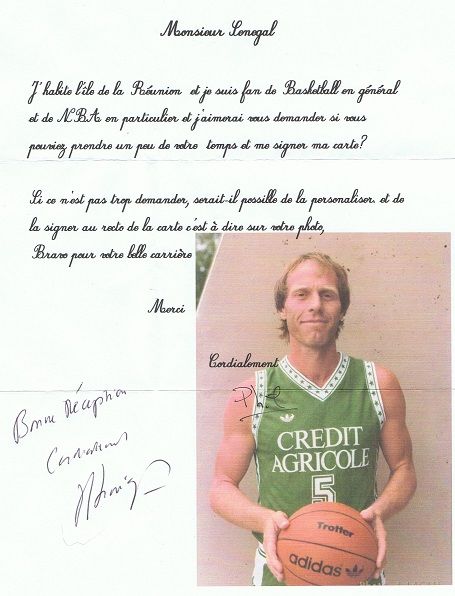 Monsieur Senegal
J'habite l'île de la Réunion et je suis fan de Basketball en général
et de NBA en particulier et j'aimerai vous demander si vous
pouviez prendre un peu de votre temps et me signer ma carte?
Si ce n'est pas trop demander, serait-il possible de la personaliser. et de
la signer au recto de la carte c'est à dire sur votre photo,
Bravo pour votre belle carrière
Merci
Cordialement
Bonne Réception
CREDIT
AGRICOLE
5
Trotter
adidas